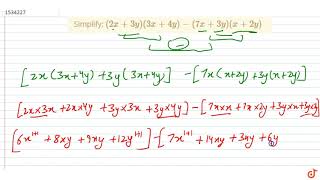 1534227
Simplify: (2x + 3y)(3x + 4y) − (7x + 3y)(x + 2y)
[2x(3x+4y) +3y(3x+4y)] −[7x(x+2y)+3y(x+2y)]
[2x×3x +2x×4y +3y×3x +3y×4y]−[7x×x+7x×2y+3y×x+3y×2y]
[6x¹⁺¹ +8xy +9xy +12y¹⁺¹]−[7x¹⁺¹ +14xy +3xy +6y